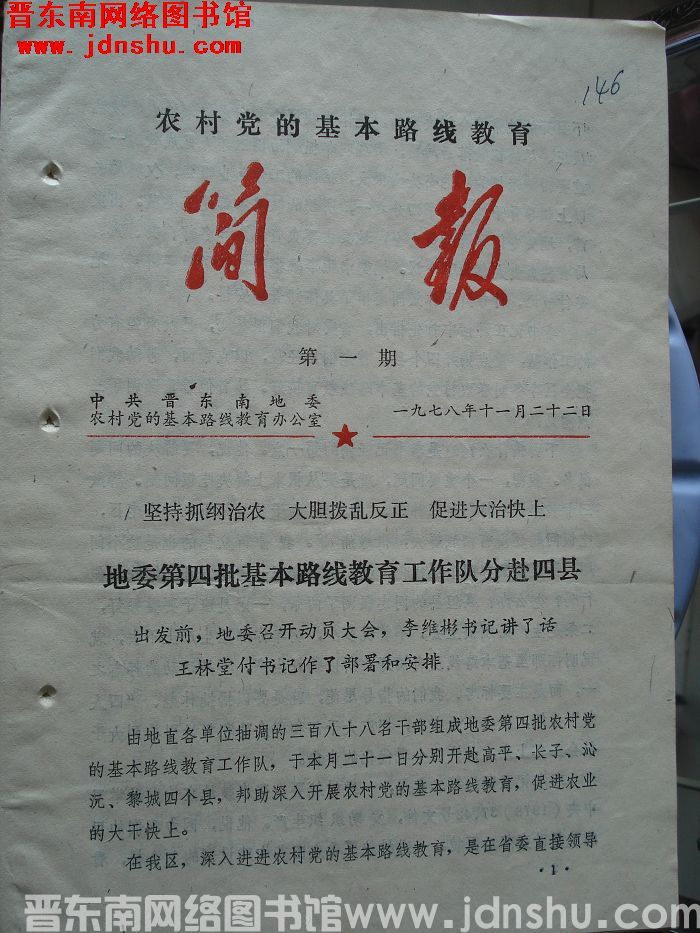 晋东南网络图书馆
www.jdnshu.com
146
农村党的基本路线教育
简报
第一期
中共晋东南地委
农村党的基本路线教育办公室
一九七八年十一月二十二日
坚持抓纲治农 大胆拨乱反正 促进大治快上
地委第四批基本路线教育工作队分赴四县
出发前，地委召开动员大会，李维彬书记讲了话
王林堂付书记作了部署和安排
由地直各单位抽调的三百八十八名干部组成地委第四批农村党
的基本路线教育工作队，于本月二十一日分别开赴高平、长子、沁
沅、黎城四个县，邦助深入开展农村党的基本路线教育，促进农业
的大干快上。
在我区，深入进进农村党的基本路线教育，是在省委直接领导
·1·
晋东南网络图书馆www.jdnshu.com